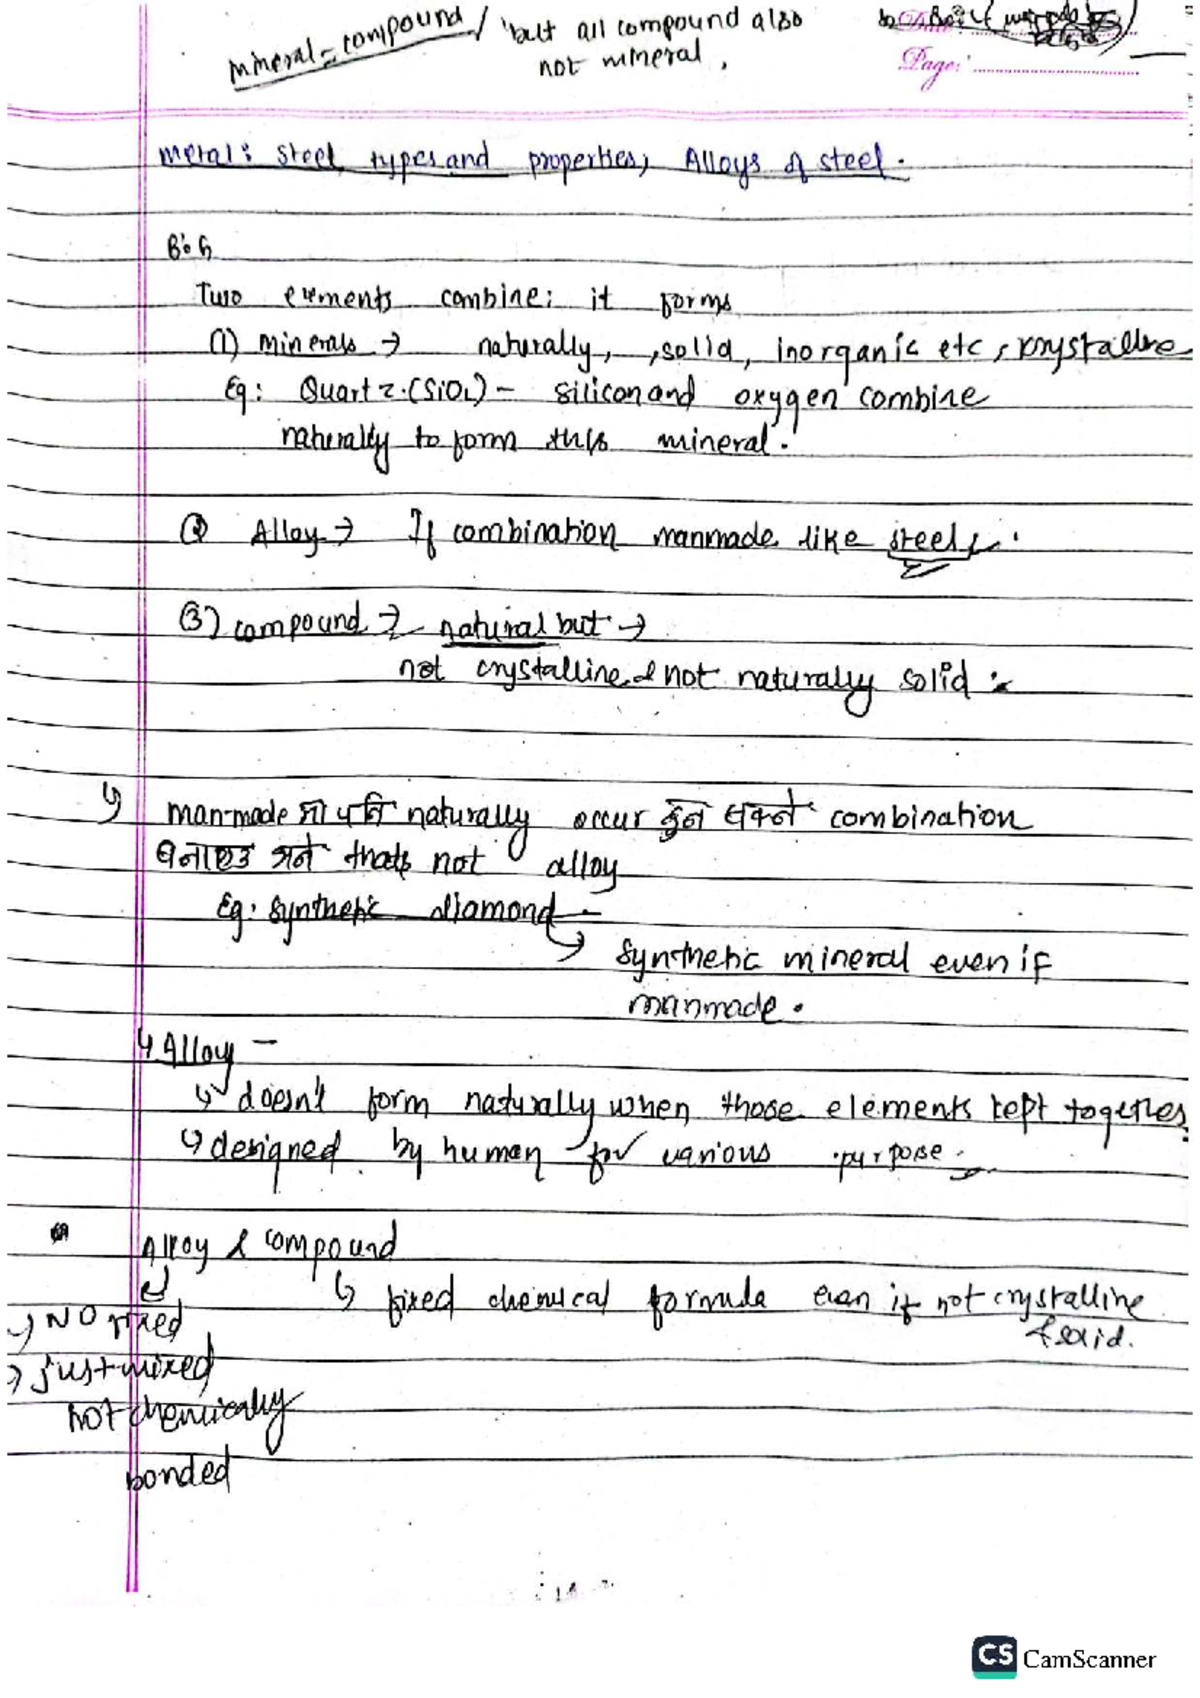 mineral = compound / but all compound also
not mineral.
Date:
Page:
Metal: Steel, types and properties; Alloys of steel.
Two elements combine: it forms
(1) minerals → naturally, solid, inorganic etc, krystalline
Eg: Quartz. (SiO2) - silicon and oxygen combine
naturally to form this mineral.
② Alloy → If combination manmade like steel.
(3) compound → natural but →
not crystalline & not naturally solid
man-made मा पनि naturally occur हुन सक्ने combination
बनाएउ भने thats not alloy
Eg: Synthetic diamond -
synthetic mineral even if
manmade.
Alloy -
doesn't form naturally when those elements kept together.
designed by human for various purpose.
Alloy & compound
fixed chemical formula even if not crystalline
& solid.
NO fixed
just mixed
not chemically
bonded
CS CamScanner